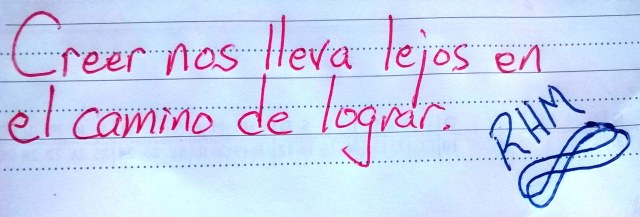 Creer nos lleva lejos en
el camino de lograr.
RHM